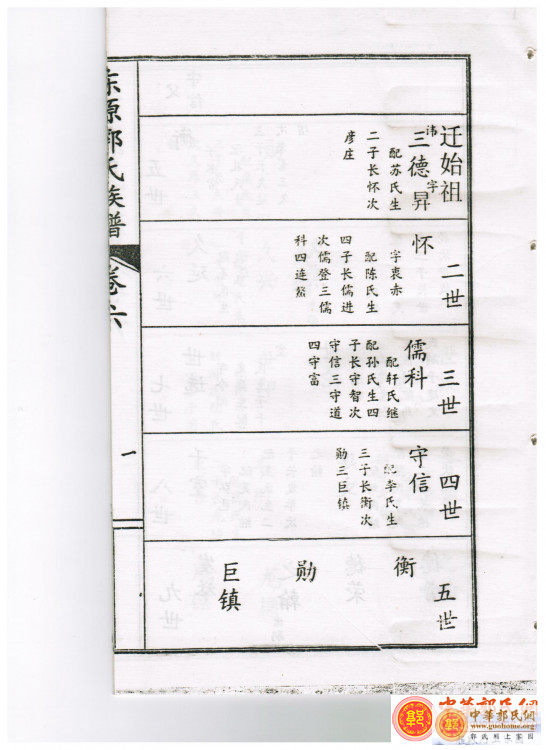 东原郭氏族谱
卷六
一
迁始祖
讳三字德昇
配苏氏生
二子长怀次
彦庄
二世
怀
字衷赤
配陈氏生
四子长儒进
次儒登三儒
科四连鳌
三世
儒科
配轩氏继
配孙氏生四
子长守智次
守信三守道
四守富
四世
守信
配李氏生
三子长衡次
勋三巨镇
五世
衡
勋
巨镇
中華郭氏網
中華郭氏網
www.guohome.org